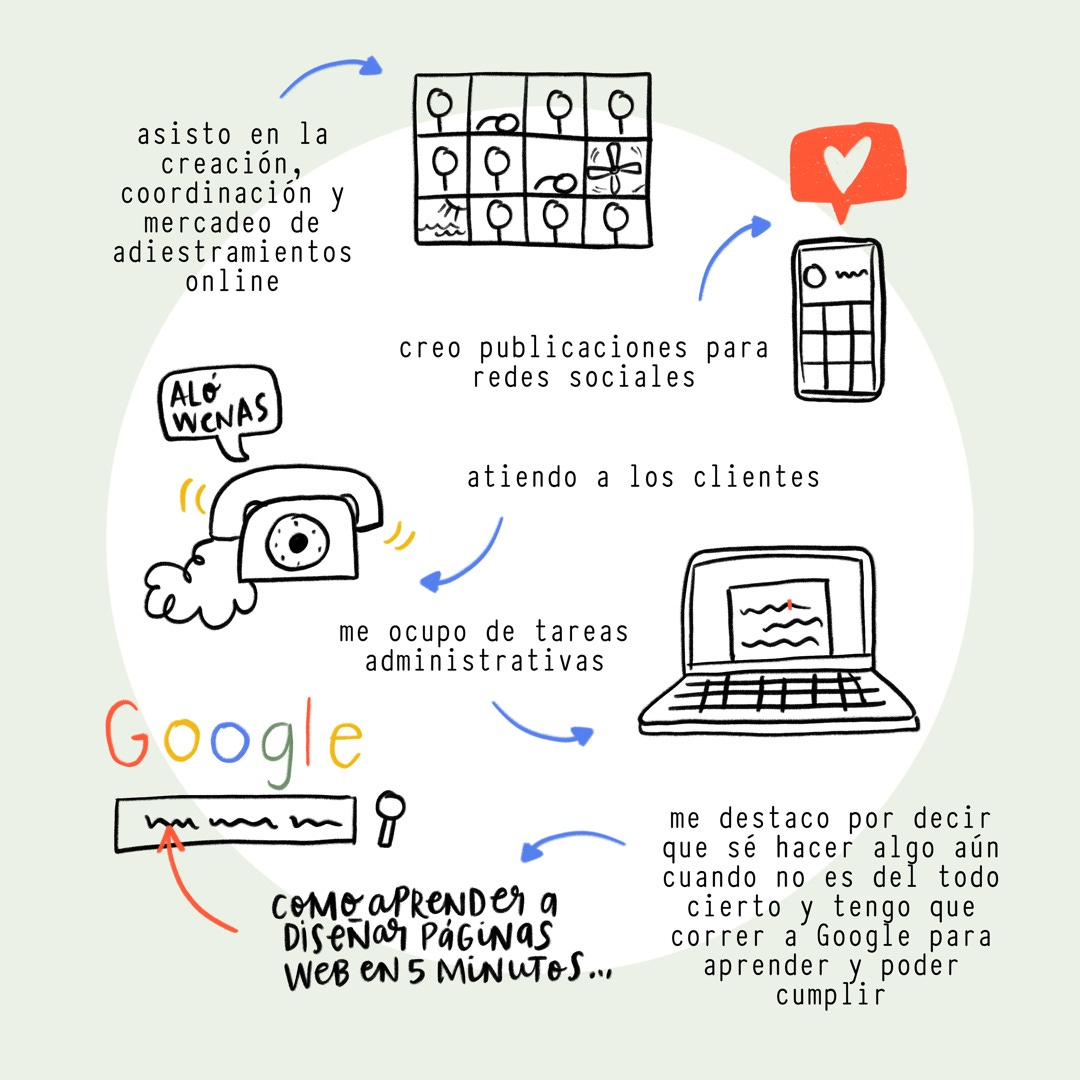 asisto en la
creación,
coordinación y
mercadeo de
adiestramientos
online
creo publicaciones para
redes sociales
ALÓ
WENAS
atiendo a los clientes
me ocupo de tareas
administrativas
Google
me destaco por decir
que sé hacer algo aún
cuando no es del todo
cierto y tengo que
correr a Google para
aprender y poder
cumplir
COMO APRENDER A
DISEÑAR PÁGINAS
WEB EN 5 MINUTOS...